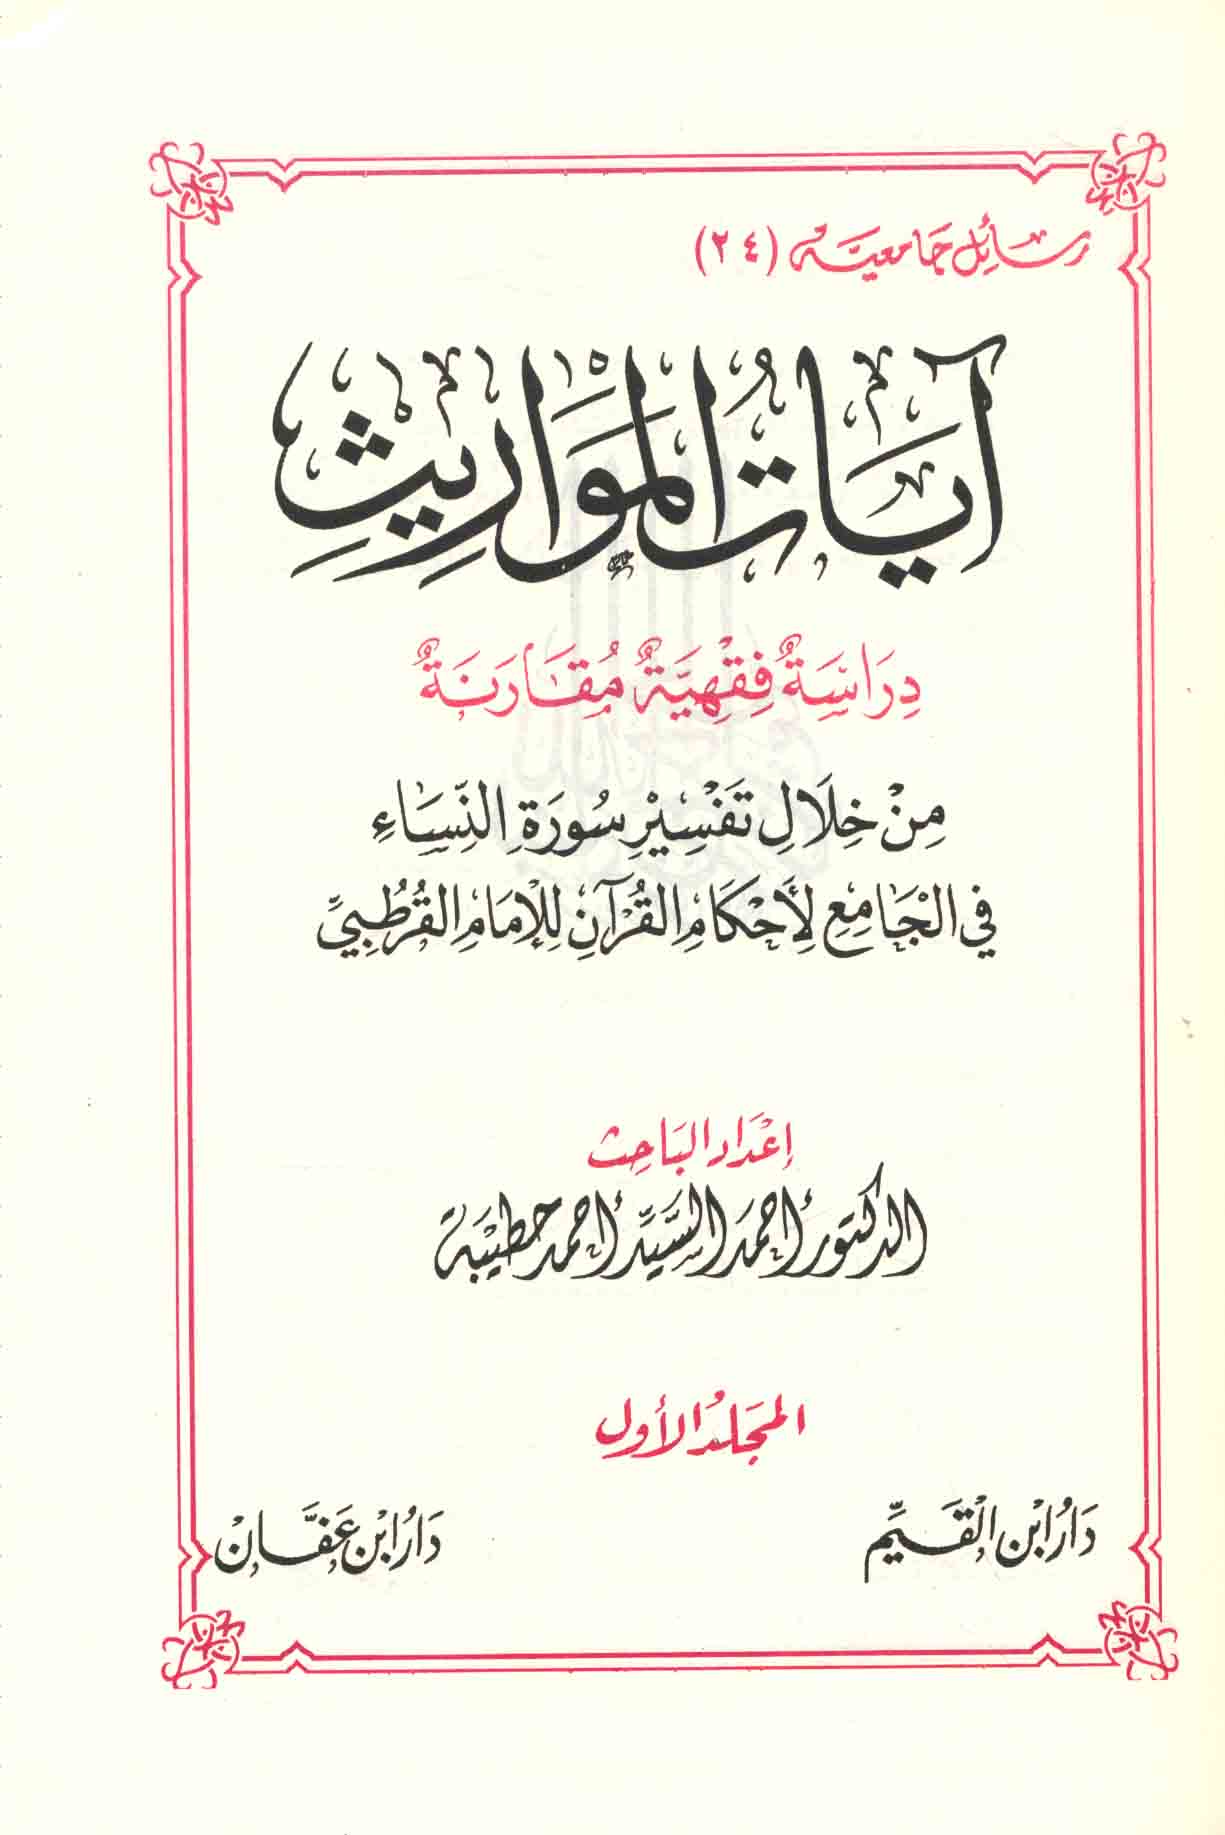 رسائل جامعية (٢٤)
آيَاتُ المَوَارِيثِ
دِرَاسَةٌ فِقْهِيَّةٌ مُقَارَنَةٌ
مِنْ خِلَالِ تَفْسِيْرِ سُورَةِ النِّسَاءِ
فِي الْجَامِعِ لِأَحْكَامِ الْقُرْآنِ لِلْإِمَامِ الْقُرْطُبِيِّ
إِعْدَادُ البَاحِثِ
الدكتور أحمد السَّيِّد أحمد حطيبة
المجَلدُ الأول
دَارُ ابْنِ الْقَيِّمِ
دَارُ ابْنِ عَفَّانْ